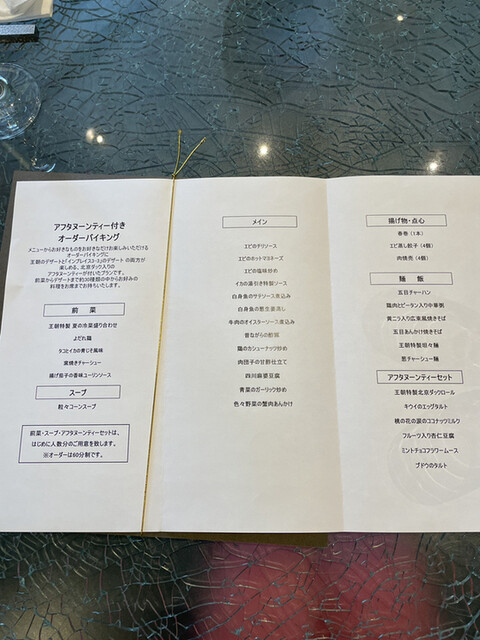 アフタヌーンティー付き
オーダーバイキング
メニューからお好きなものをお好きなだけお楽しみいただける
オーダーバイキングに
王朝のデザートと「インプレイス3-3」のデザート の両方が
楽しめる、北京ダック入りの
アフタヌーンティーが付いたプランです。
前菜からデザートまで約30種類の中からお好みの
料理をお席までお持ちいたします。
前 菜
王朝特製 夏の冷菜盛り合わせ
よだれ鶏
タコとイカの青じそ風味
窯焼きチャーシュー
揚げ茄子の香味ユーリンソース
スープ
粒々コーンスープ
前菜・スープ・アフタヌーンティーセットは、
はじめに人数分のご用意を致します。
※オーダーは60分制です。
メイン
エビのチリソース
エビのホットマヨネーズ
エビの塩味炒め
イカの湯引き特製ソース
白身魚のサテソース煮込み
白身魚の葱生姜蒸し
牛肉のオイスターソース煮込み
昔ながらの酢豚
鶏のカシューナッツ炒め
肉団子の甘酢仕立て
四川麻婆豆腐
青菜のガーリック炒め
色々野菜の蟹肉あんかけ
揚げ物・点心
春巻（1本）
エビ蒸し餃子（4個）
肉焼売（4個）
麺 飯
五目チャーハン
鶏肉とピータン入り中華粥
黄ニラ入り広東風焼きそば
五目あんかけ焼きそば
王朝特製担々麺
葱チャーシュー麺
アフタヌーンティーセット
王朝特製北京ダックロール
キウイのエッグタルト
桃の花の涙のココナッツミルク
フルーツ入り杏仁豆腐
ミントチョコフラワームース
ブドウのタルト